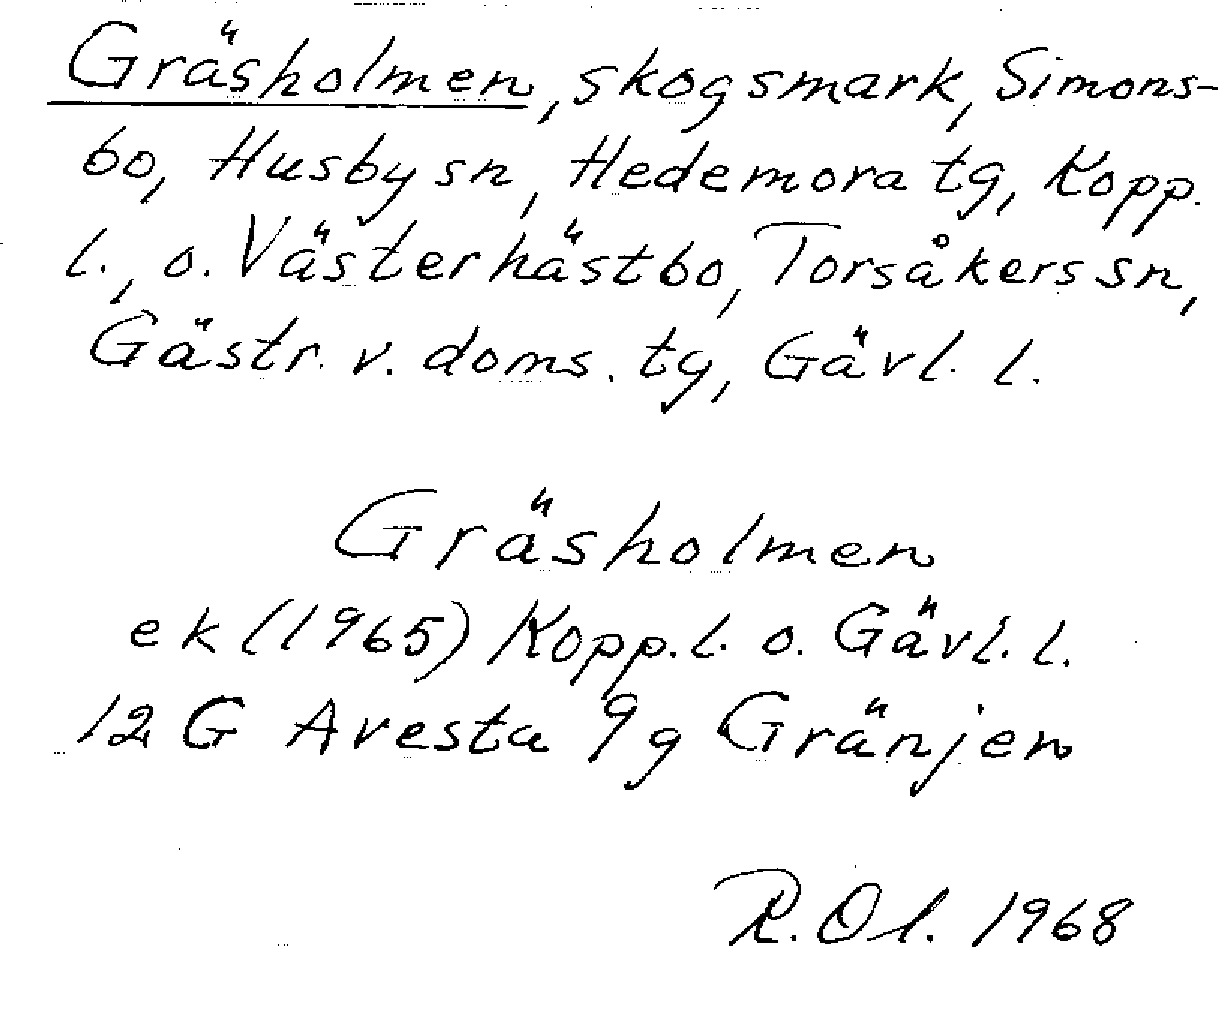 Gräsholmen, skogsmark, Simons-
bo, Husby sn, Hedemora tg, Kopp.
l., o. Västerhästbo, Torsåkers sn,
Gästr. v. doms. tg, Gävl. l.
Gräsholmen
ek (1965) Kopp. l. o. Gävl. l.
12 G Avesta 9g Gränjen
R. Ol. 1968